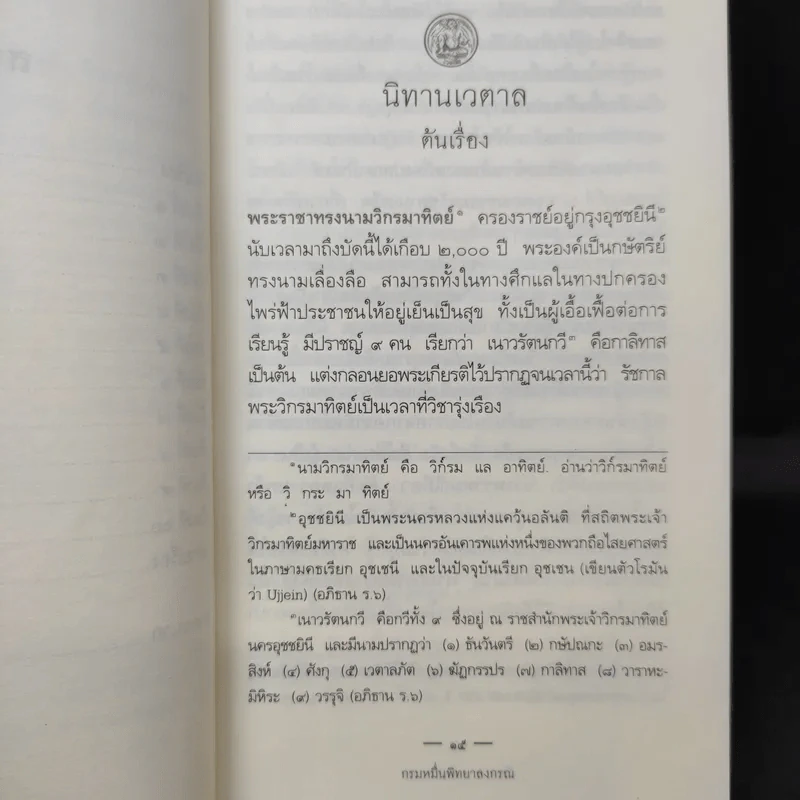 นิทานเวตาล
ต้นเรื่อง
พระราชาทรงนามวิกรมาทิตย์๑ ครองราชย์อยู่กรุงอุชชยินี๒
นับเวลามาถึงบัดนี้ได้เกือบ ๒,๐๐๐ ปี พระองค์เป็นกษัตริย์
ทรงนามเลื่องลือ สามารถทั้งในทางศึกแลในทางปกครอง
ไพร่ฟ้าประชาชนให้อยู่เย็นเป็นสุข ทั้งเป็นผู้เอื้อเฟื้อต่อการ
เรียนรู้ มีปราชญ์ ๙ คน เรียกว่า เนาวรัตนกวี๓ คือกาลิทาส
เป็นต้น แต่งกลอนยอพระเกียรติไว้ปรากฏจนเวลานี้ว่า รัชกาล
พระวิกรมาทิตย์เป็นเวลาที่วิชารุ่งเรือง
๑นามวิกรมาทิตย์ คือ วิกฺรม แล อาทิตย์. อ่านว่าวิกฺรมาทิตย์
หรือ วิ กระ มา ทิตย์
๒อุชชยินี เป็นพระนครหลวงแห่งแคว้นอลันติ ที่สถิตพระเจ้า
วิกรมาทิตย์มหาราช และเป็นนครอันเคารพแห่งหนึ่งของพวกถือไสยศาสตร์
ในภาษามคธเรียก อุชเชนี และในปัจจุบันเรียก อุชเชน (เขียนตัวโรมัน
ว่า Ujjein) (อภิธาน ร.๖)
๓เนาวรัตนกวี คือกวีทั้ง ๙ ซึ่งอยู่ ณ ราชสำนักพระเจ้าวิกรมาทิตย์
นครอุชชยินี และมีนามปรากฏว่า (๑) ธันวันตรี (๒) กษัปณกะ (๓) อมร-
สิงห์ (๔) ศังกุ (๕) เวตาลภัต (๖) ฆัฏกรรปร (๗) กาลิทาส (๘) วาราหะ-
มิหิระ (๙) วรรุจิ (อภิธาน ร.๖)
— ๑๕ —
กรมหมื่นพิทยาลงกรณ